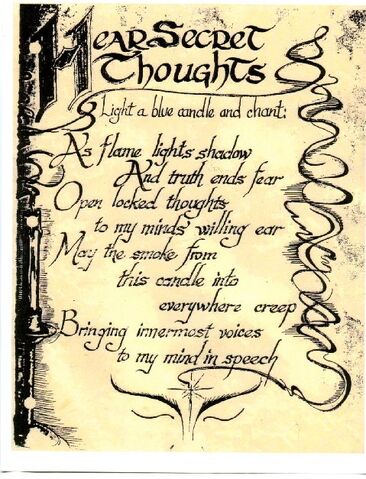 Hear Secret
Thoughts
Light a blue candle and chant:
As flame lights shadow
And truth ends fear
Open locked thoughts
to my minds' willing ear
May the smoke from
this candle into
everywhere creep
Bringing innermost voices
to my mind in speech